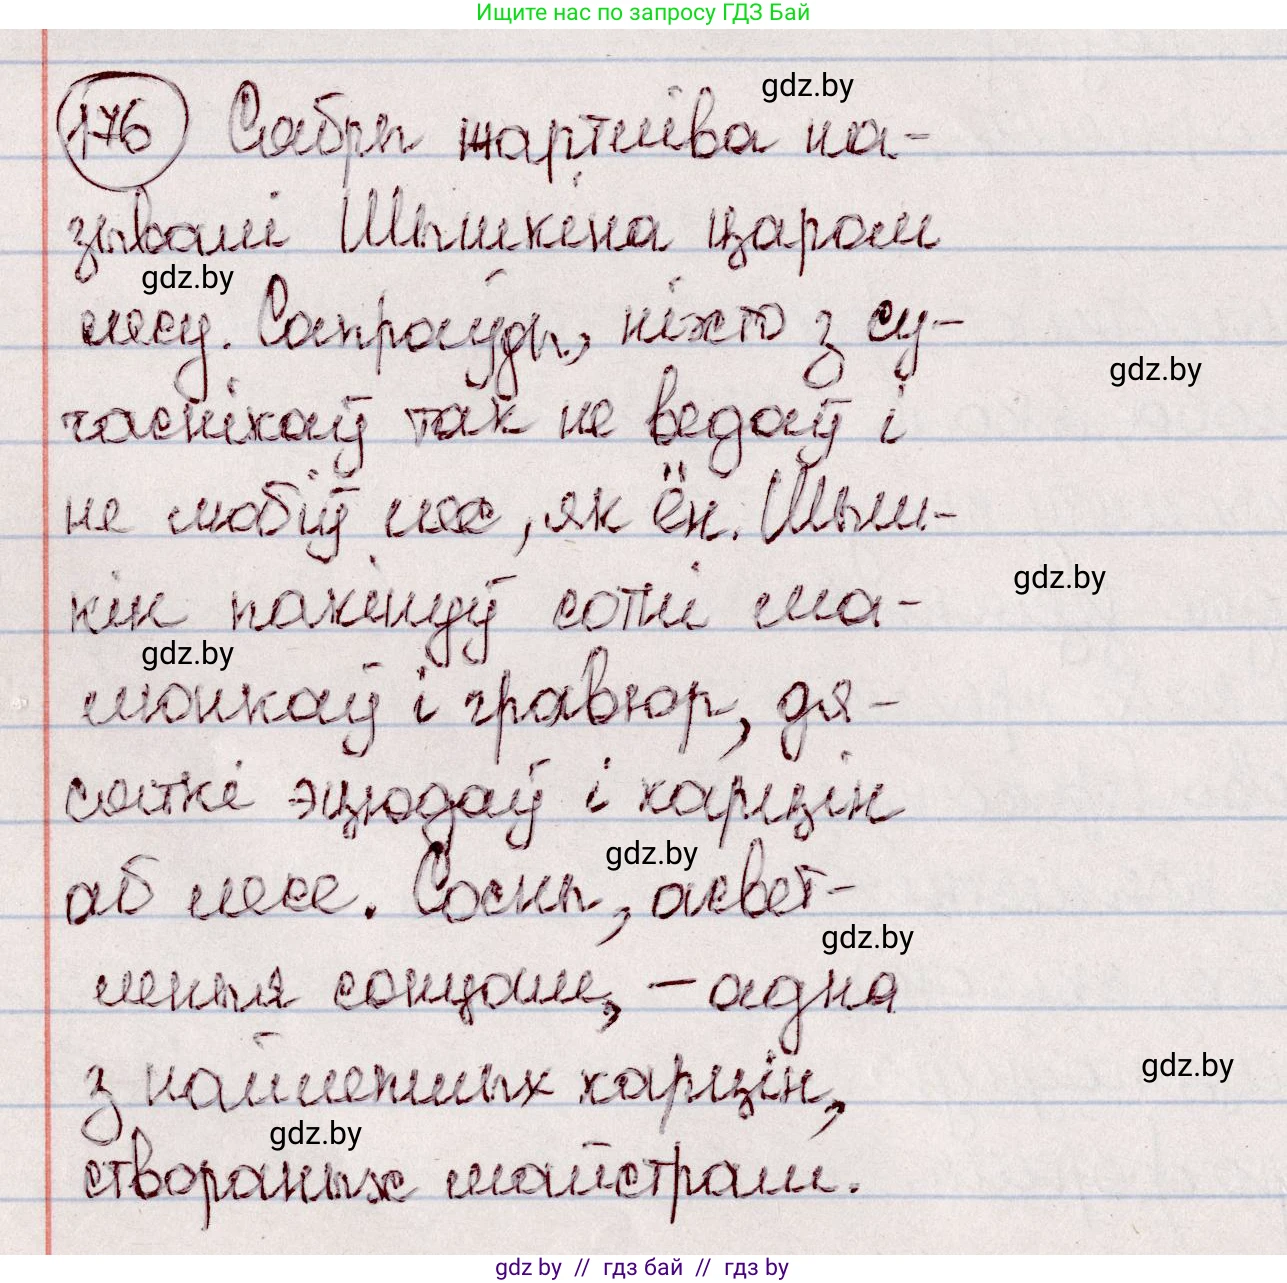 Ищите нас по запросу ГДЗ Бай
gdz.by
176 Сябры жартліва на-
зывалі Шышкіна царом
gdz.by
лесу. Сапраўды, ніхто з су-
gdz.by
часнікаў так не ведаў і
не любіў лес, як ён. Шыш-
gdz.by
кін пакінуў сотні ма-
gdz.by
люнкаў і гравюр, дзя-
сяткі эцюдаў і карцін
gdz.by
аб лесе. Сосны, асвет-
gdz.by
леныя сонцам, – адна
gdz.by
з найлепшых карцін,
gdz.by
створаных майстрам.
gdz by // гдз бай // гдз by